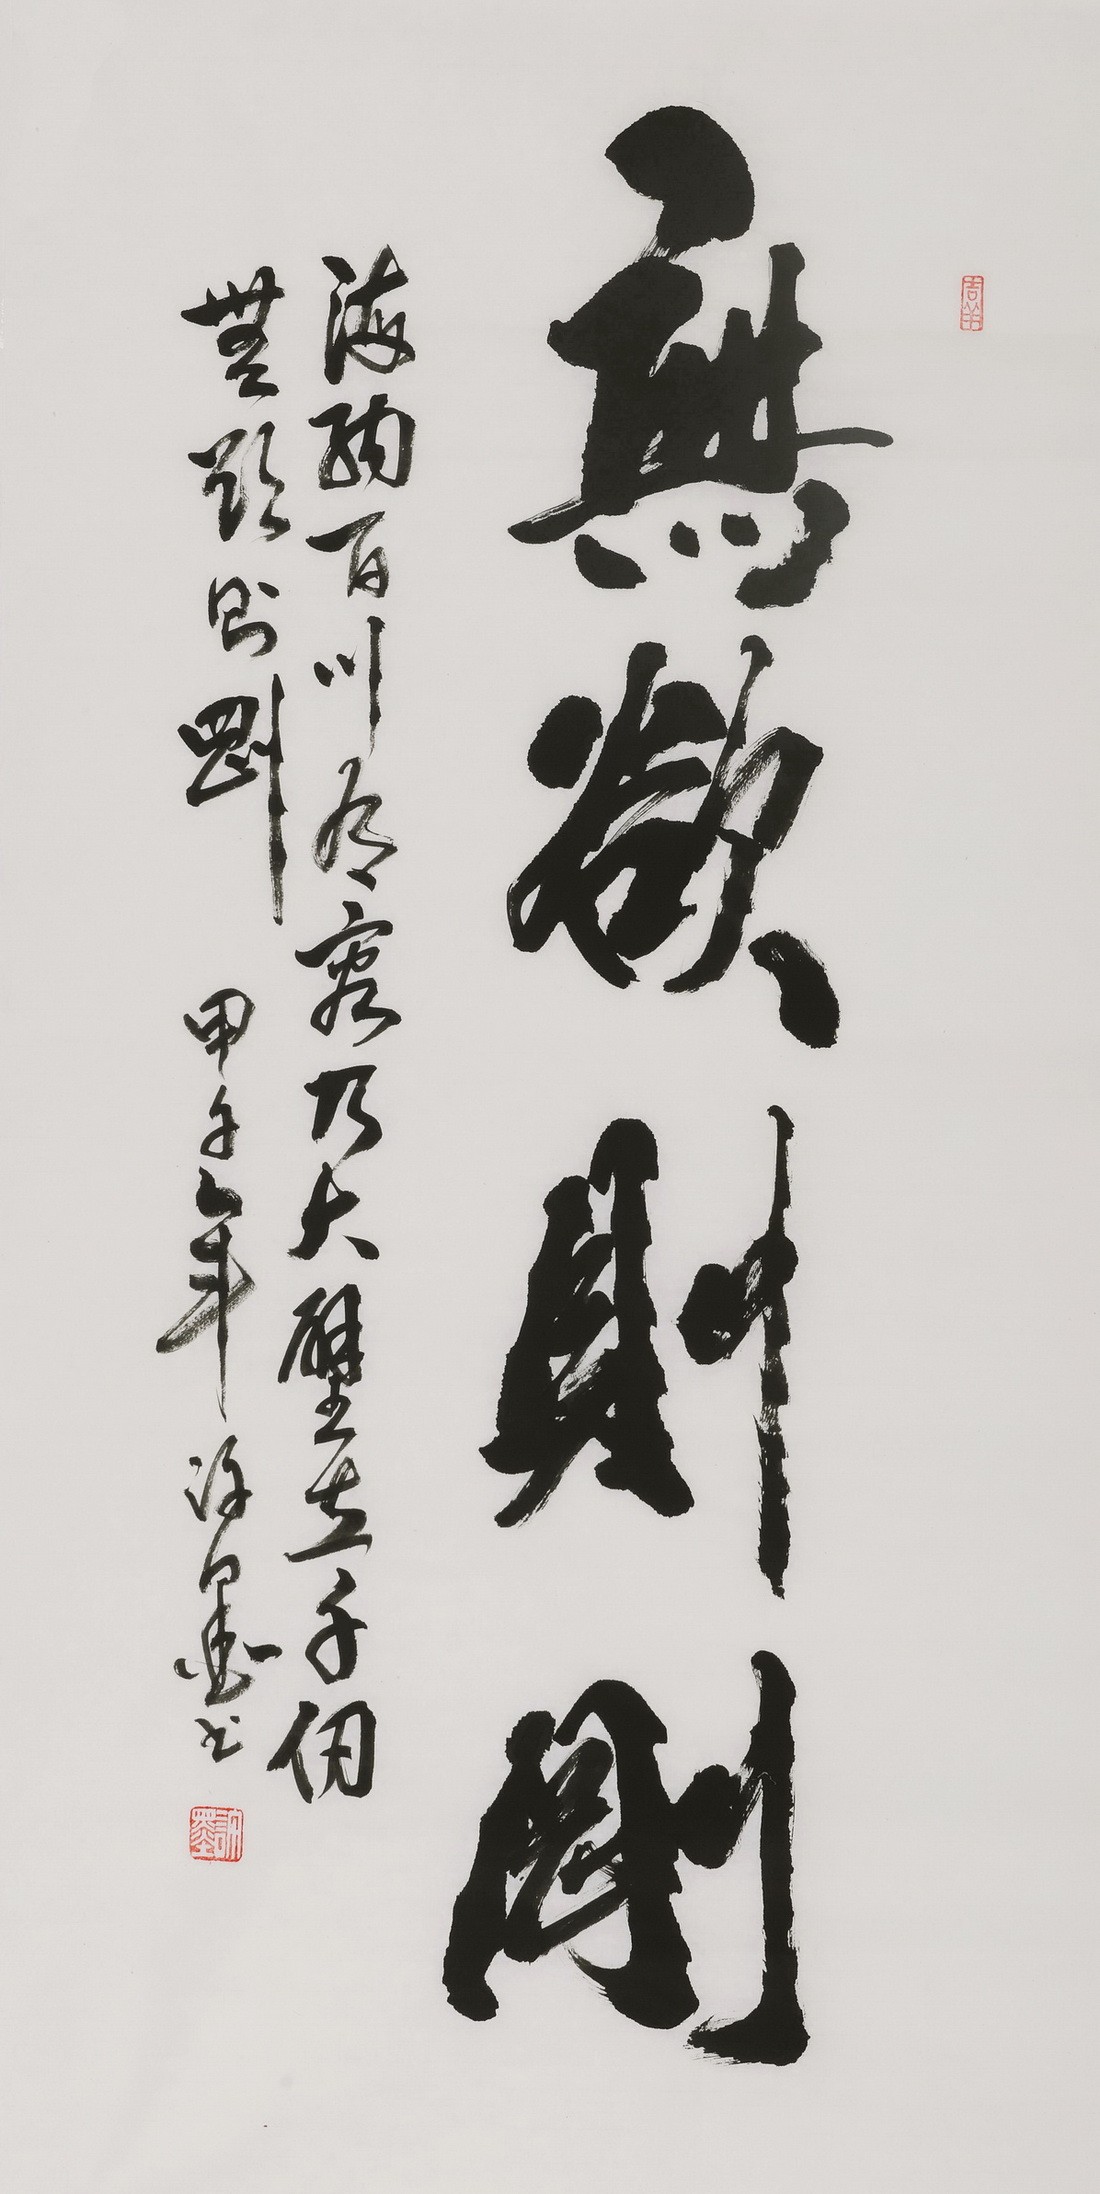 無欲則剛
海納百川有容乃大壁立千仞
無欲則剛 甲午年 許墨書
許墨